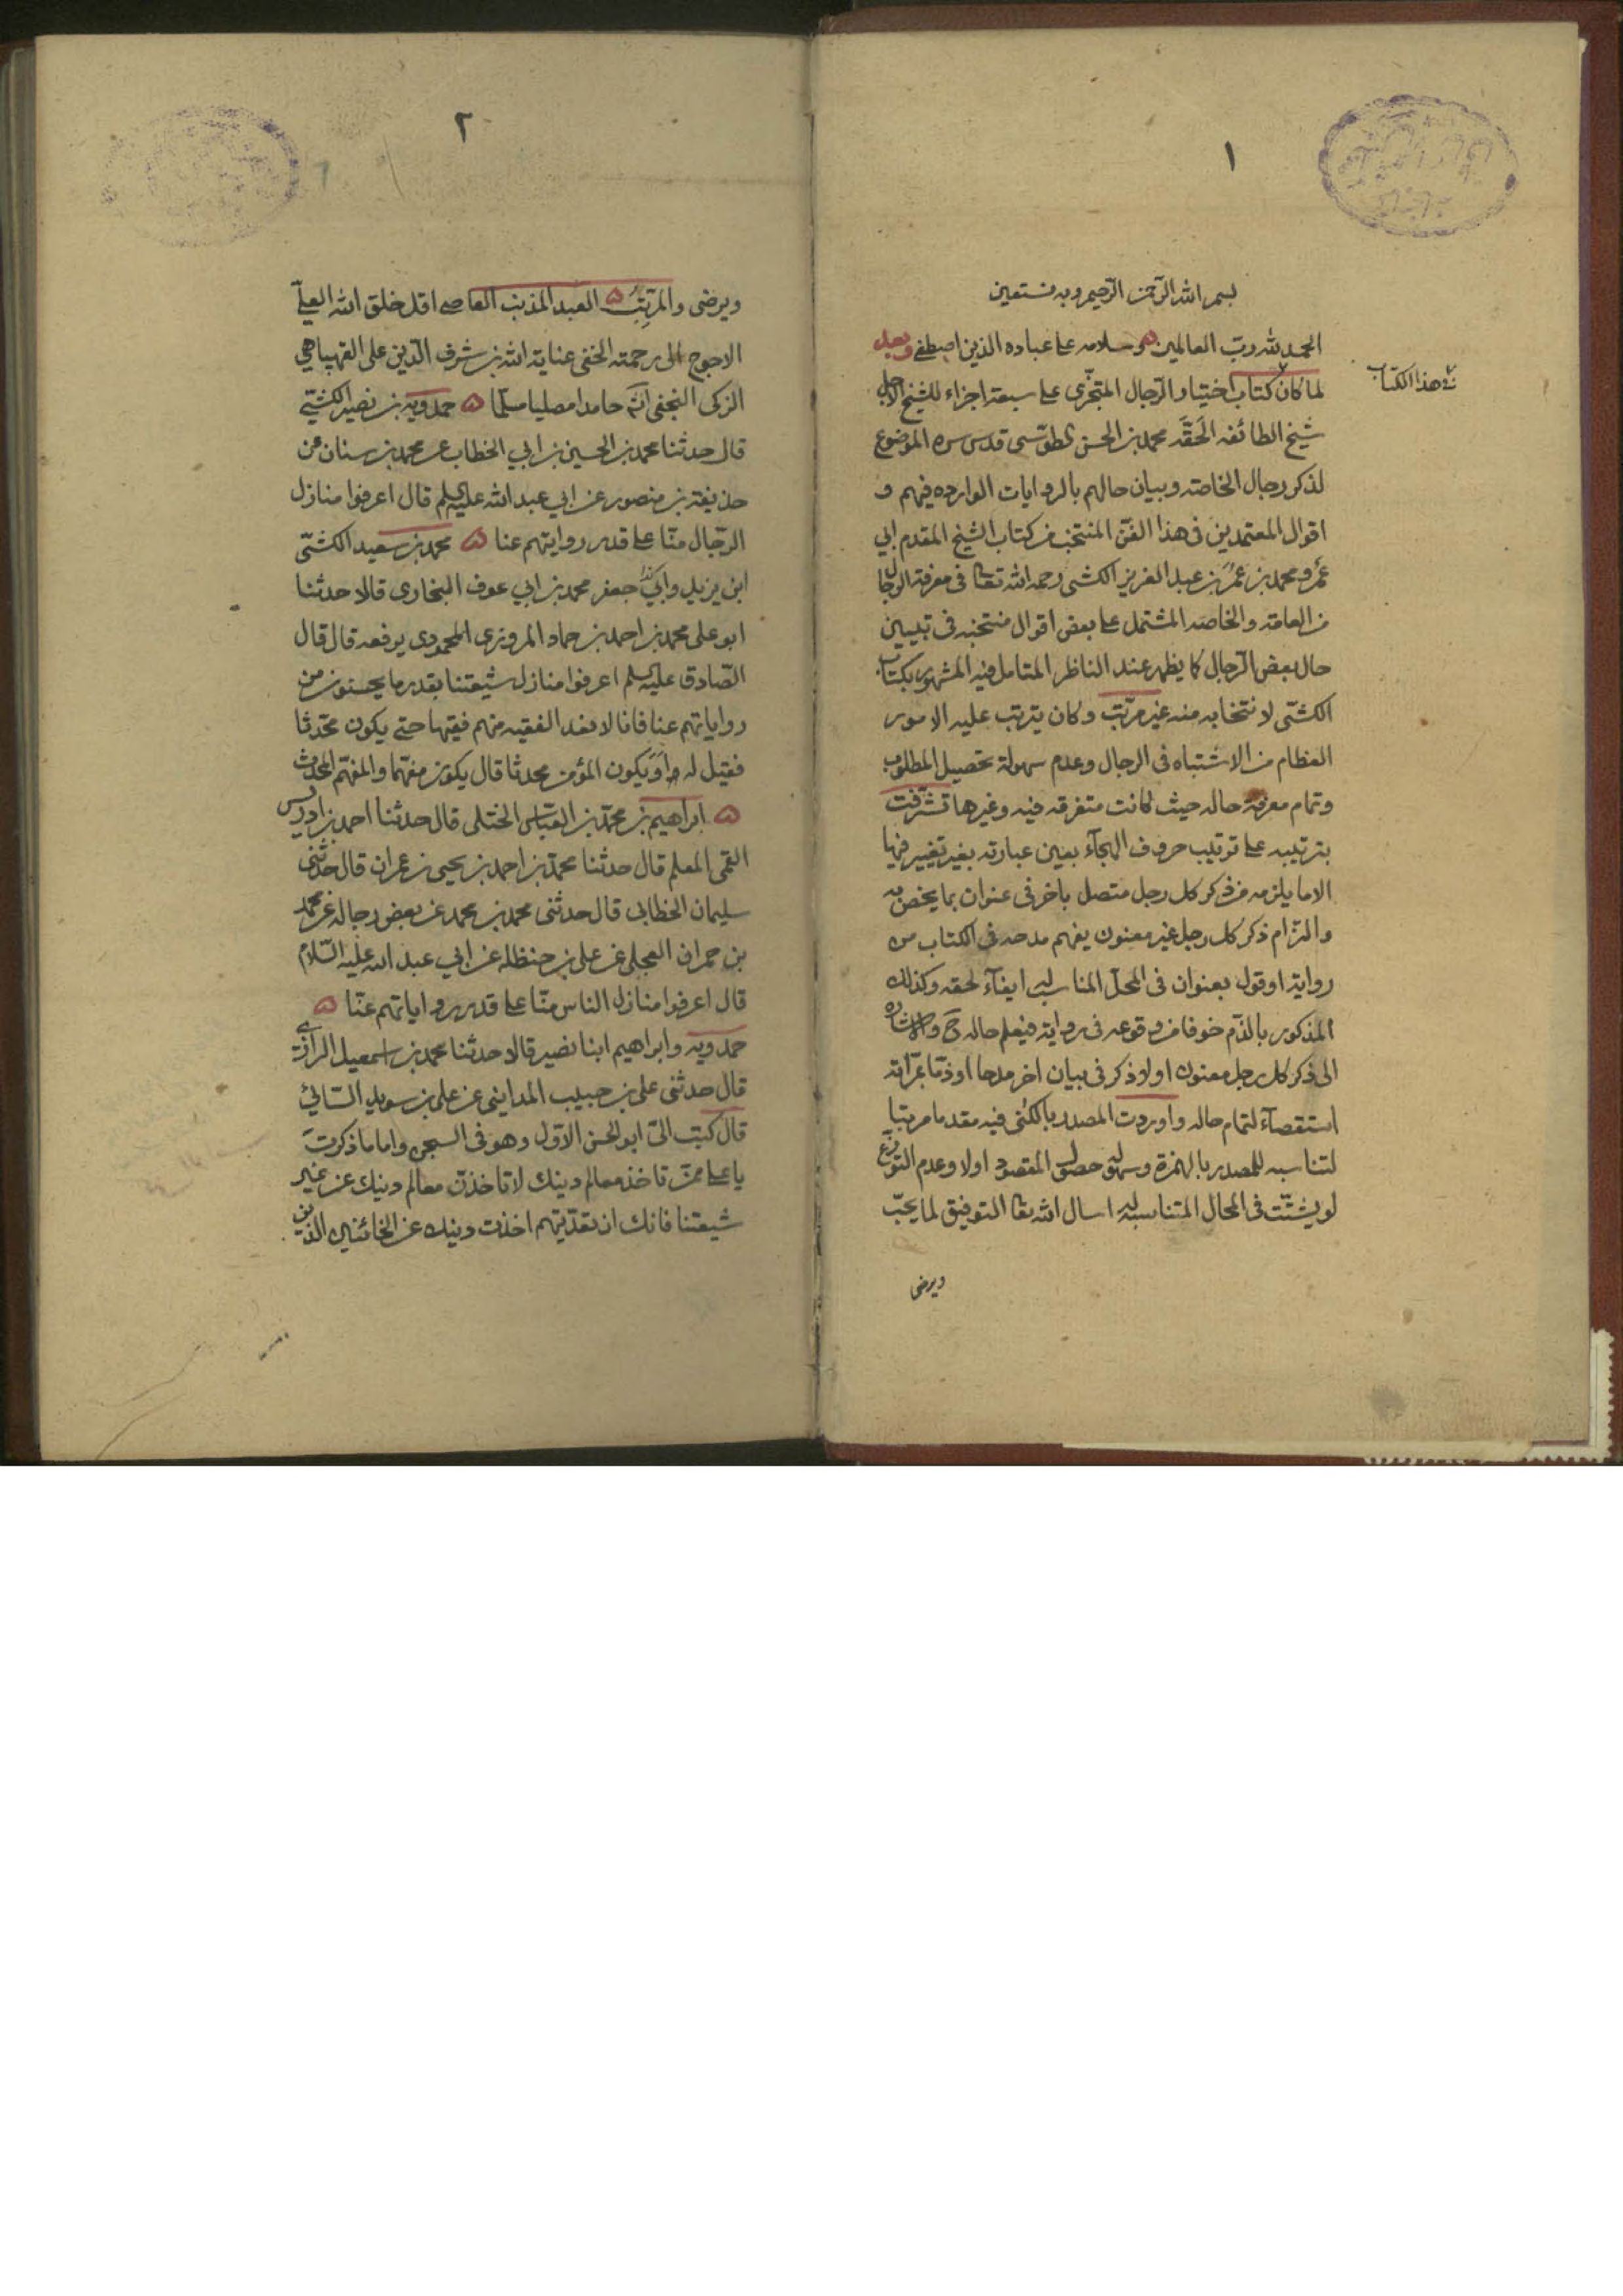 ١
بسم الله الرحمن الرحيم وبه نستعين
الحمد لله رب العالمين وسلامه على عباده الذين اصطفى وبعد
هذا الكتاب
لما كان كتاب اختيار الرجال المتجزى على سبعة اجزاء للشيخ الاجل
شيخ الطائفه الحقه محمد بن الحسن الطوسى قدس سره الموضوع
لذكر رجال الخاصه وبيان حالهم بالروايات الوارده فيهم و
اقوال المعتمدين فى هذا الفن المنتخب من كتاب الشيخ المقدم ابي
عمرو محمد بن عمر بن عبد العزيز الكشى رحمه الله تعالى فى معرفة الرجال
من العامه والخاصه المشتمل على بعض اقوال منتخبه فى تبيين
حال بعض الرجال كما يظهر عند الناظر المتامل فيه المشهور بكتاب
الكشى لانتخابه منه غير مرتب وكان يترتب عليه الامور
العظام من الاشتباه فى الرجال وعدم سهولة تحصيل المطلوب
وتمام معرفة حاله حيث كانت متفرقه فيه وغيرها تشرفت
بترتيبه على ترتيب حروف الهجآء بعين عبارته بغير تغيير فيها
الا ما يلزمه من ذكر كل رجل متصل باخر فى عنوان بما يخص به
والتزام ذكر كل رجل غير معنون يفهم مدحه فى الكتاب من
رواية او قول بعنوان فى المحل المناسب له ايفآء لحقه وكذلك
المذكور بالذم خوفا من وقوعه فى رواية فيعلم حاله ح والاشاره
الى ذكر كل رجل معنون اولا ذكر فى بيان اخر مدحا او ذما بمراته
استقصآء لتمام حاله واوردت المصدر بالكنى فيه مقدما مرتبا
لتناسبه للمصدر بالهمزة وسهولة حصول المقصود اولا وعدم التوزع
لو يشتت فى المحال المتناسبه له اسال الله تعا التوفيق لما يحب
ويرضى
٢
ويرضى والمرتب العبد المذنب العاصى اقل خلق الله العلى
الاحوج الى رحمته الخفى عناية الله بن شرف الدين على القهپاهى
الزكى النجفى انه حامدا مصليا مسلما حمدويه بن نصير الكشى
قال حدثنا محمد بن الحسين بن ابي الخطاب عن محمد بن سنان عن
حذيفة بن منصور عن ابي عبد الله عليه السلم قال اعرفوا منازل
الرجال منا على قدر روايتهم عنا محمد بن سعيد الكشى
ابن يزيد وابي جعفر محمد بن ابي عوف البخارى قالا حدثنا
ابو على محمد بن احمد بن حماد المروزى المحمودى يرفعه قال قال
الصادق عليه السلم اعرفوا منازل شيعتنا بقدر ما يحسنون من
رواياتهم عنا فانا لا نعد الفقيه منهم فقيها حتى يكون محدثا
فقيل له او يكون المؤمن محدثا قال يكون مفهما والمفهم المحدث
ابراهيم بن محمد بن العباس الختلى قال حدثنا احمد بن ادريس
القمى المعلم قال حدثنا محمد بن احمد بن يحيى بن عمران قال حدثنى
سليمان الخطابى قال حدثنى محمد بن محمد عن بعض رجاله عن محمد
بن حمران العجلى عن على بن حنظله عن ابي عبد الله عليه السلام
قال اعرفوا منازل الناس منا على قدر رواياتهم عنا
حمدويه وابراهيم ابنا نصير قالا حدثنا محمد بن اسمعيل الرازى
قال حدثنى على بن حبيب المداينى عن على بن سويد السائى
قال كتب الى ابو الحسن الاول وهو فى السجن واما ما ذكرت
يا على ممن تاخذ معالم دينك لا تاخذن معالم دينك عن غير
شيعتنا فانك ان تعديتهم اخذت دينك عن الخائنين الذين